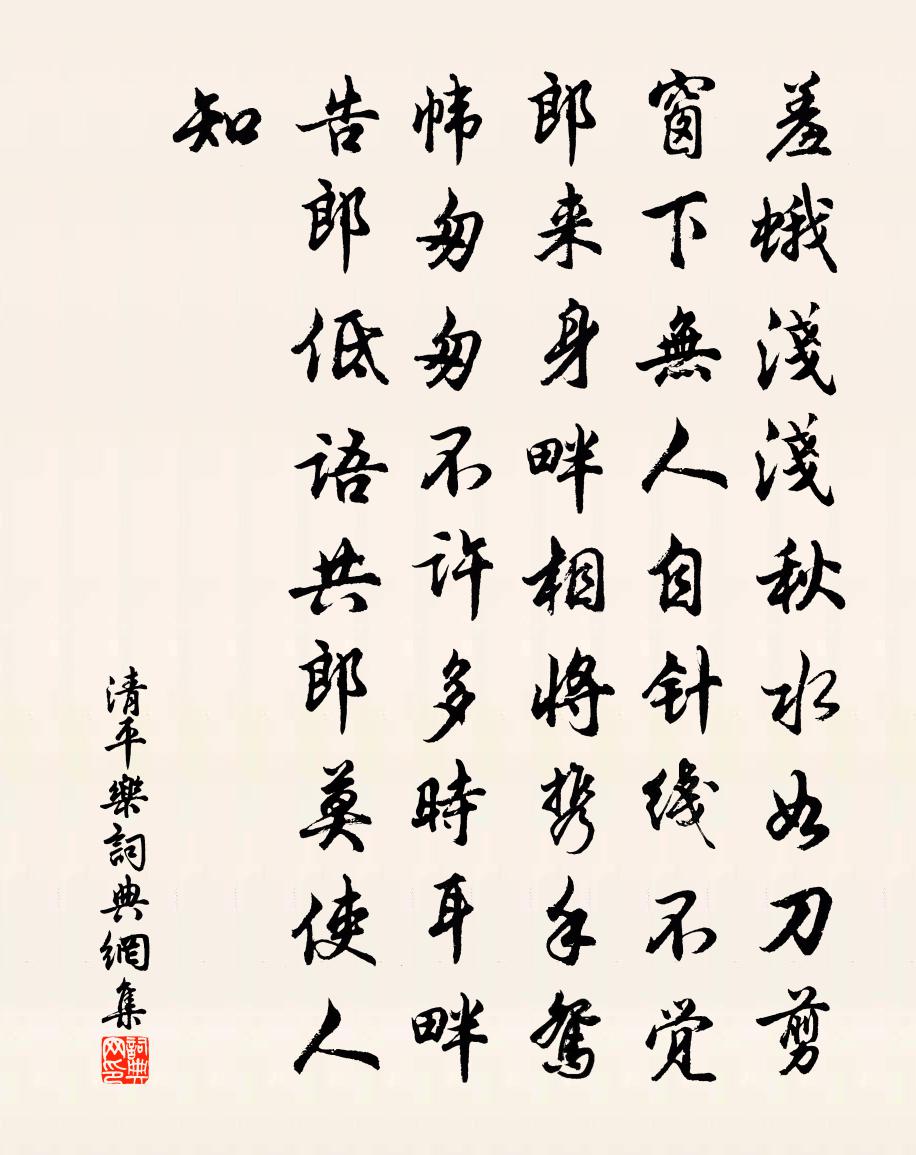 羞蛾淺淺秋水如刀剪
窗下無人自针线不觉
郎来身畔相将携手鸳
帏匆匆不许多時耳畔
告郎低语共郎莫使人
知
清平樂詞典網集
詞典网印